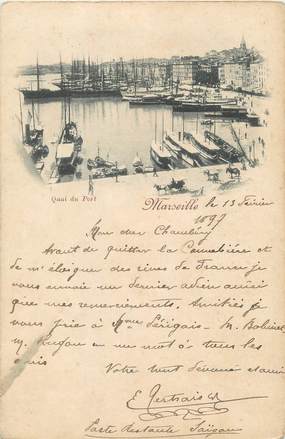 Quai du Port
Marseille le 13 Février
1897
Mon cher Chambéry
Avant de quitter la Cannebière et
de m'éloigner des rives de France je
vous envoie un dernier adieu ainsi
que mes remerciements. Amitiés je
vous prie à Mme Périgais - M.
M. en un mot à tous les
amis
Votre tout dévoué et ami
E.
Poste Restante Saïgon